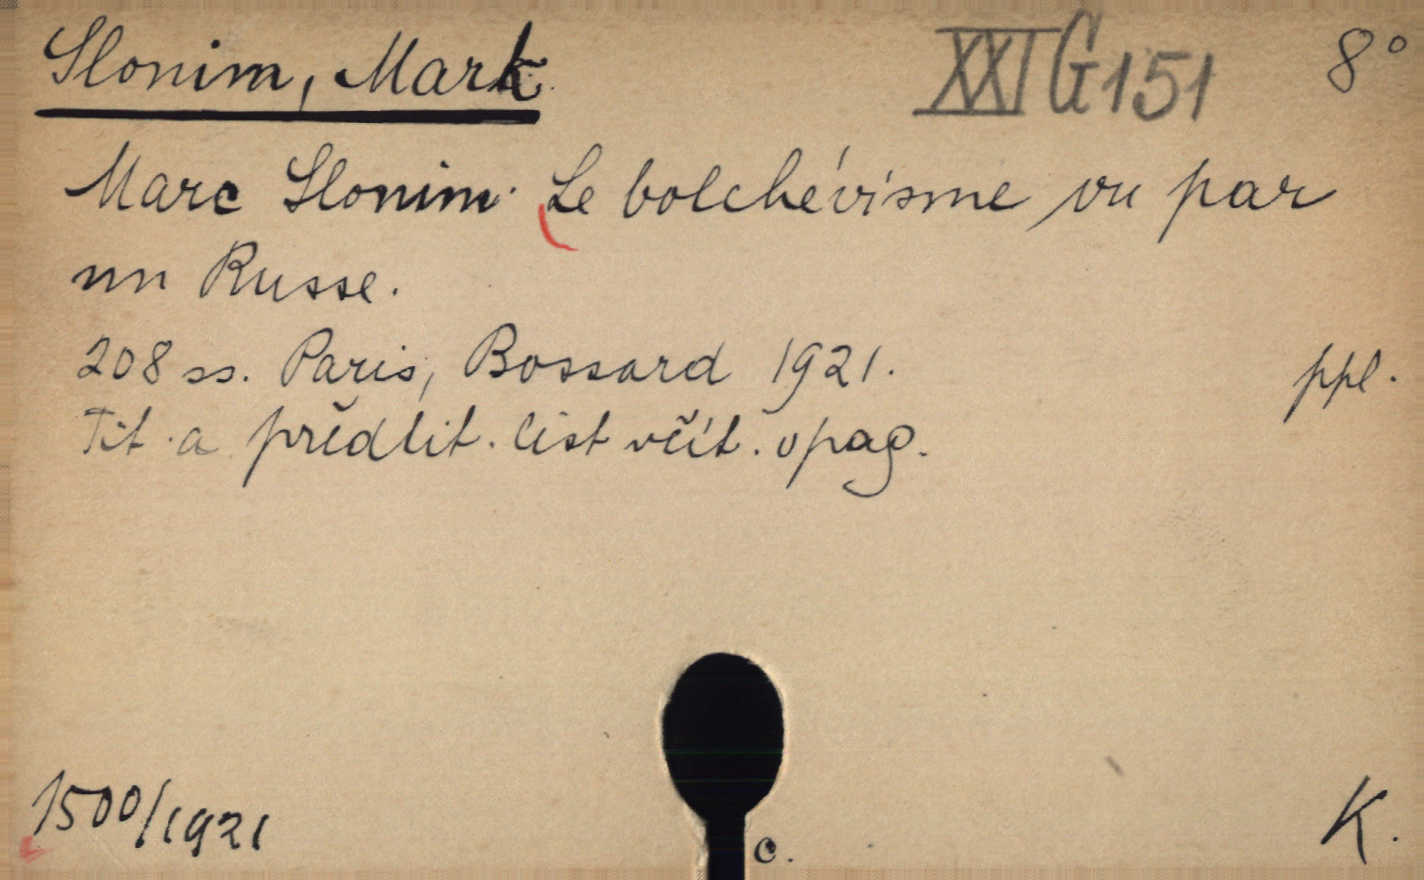 Slonim, Mark XXI G 151 8°
Marc Slonim: Le bolchévisme vu par
un Russe.
208 ss. Paris, Bossard 1921. ppl.
Tit. a předtit. list včít. v pag.
1500/1921 K.
c.